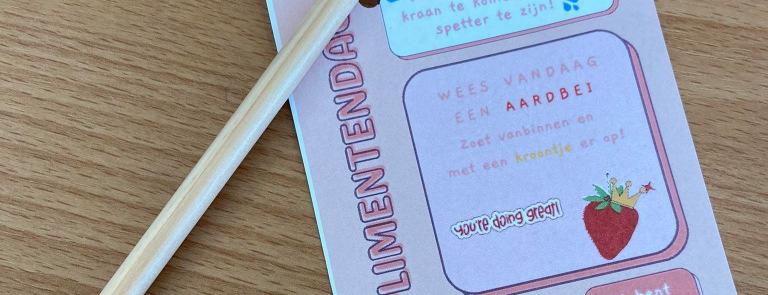 kraan te
spetter te zijn!
LIMENTENDA
WEES VANDAAG
EEN AARDBEI
Zoet vanbinnen en
met een kroontje er op!
you're doing great!
bent